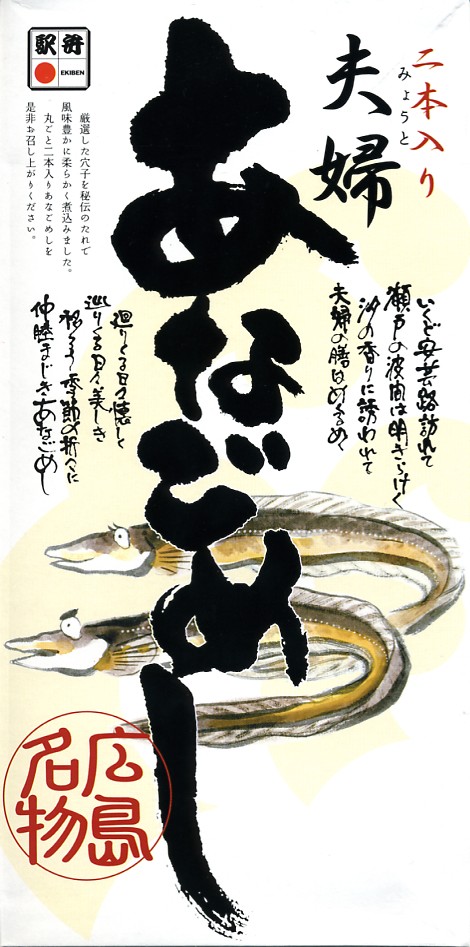 二本入り
夫婦
みょうと
あなごめし
駅弁
EKIBEN
厳選した穴子を秘伝のたれで
風味豊かに柔らかく煮込みました。
丸ごと二本入りあなごめしを
是非お召し上がりください。
いくど安芸路訪れて
瀬戸の波間は明きらけく
汐の香りに誘われて
夫婦の膳はめくるめく
廻りくる日々懐しく
巡りくる日々美しき
移ろう季節の折々に
仲睦まじきあなごめし
広島
名物